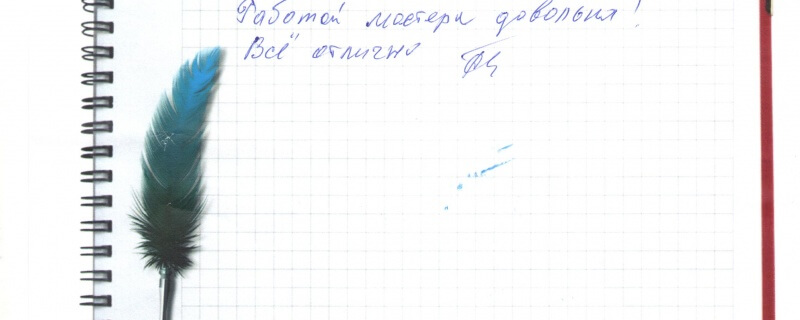 Работой мастера довольня!
Всё отлично